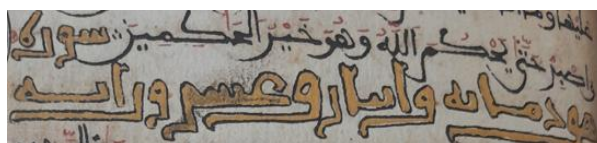 عليها وما
واصبر حتى يحكم الله وهو خير الحكمين سورة
هود مايه واثنان وعشرون ايه